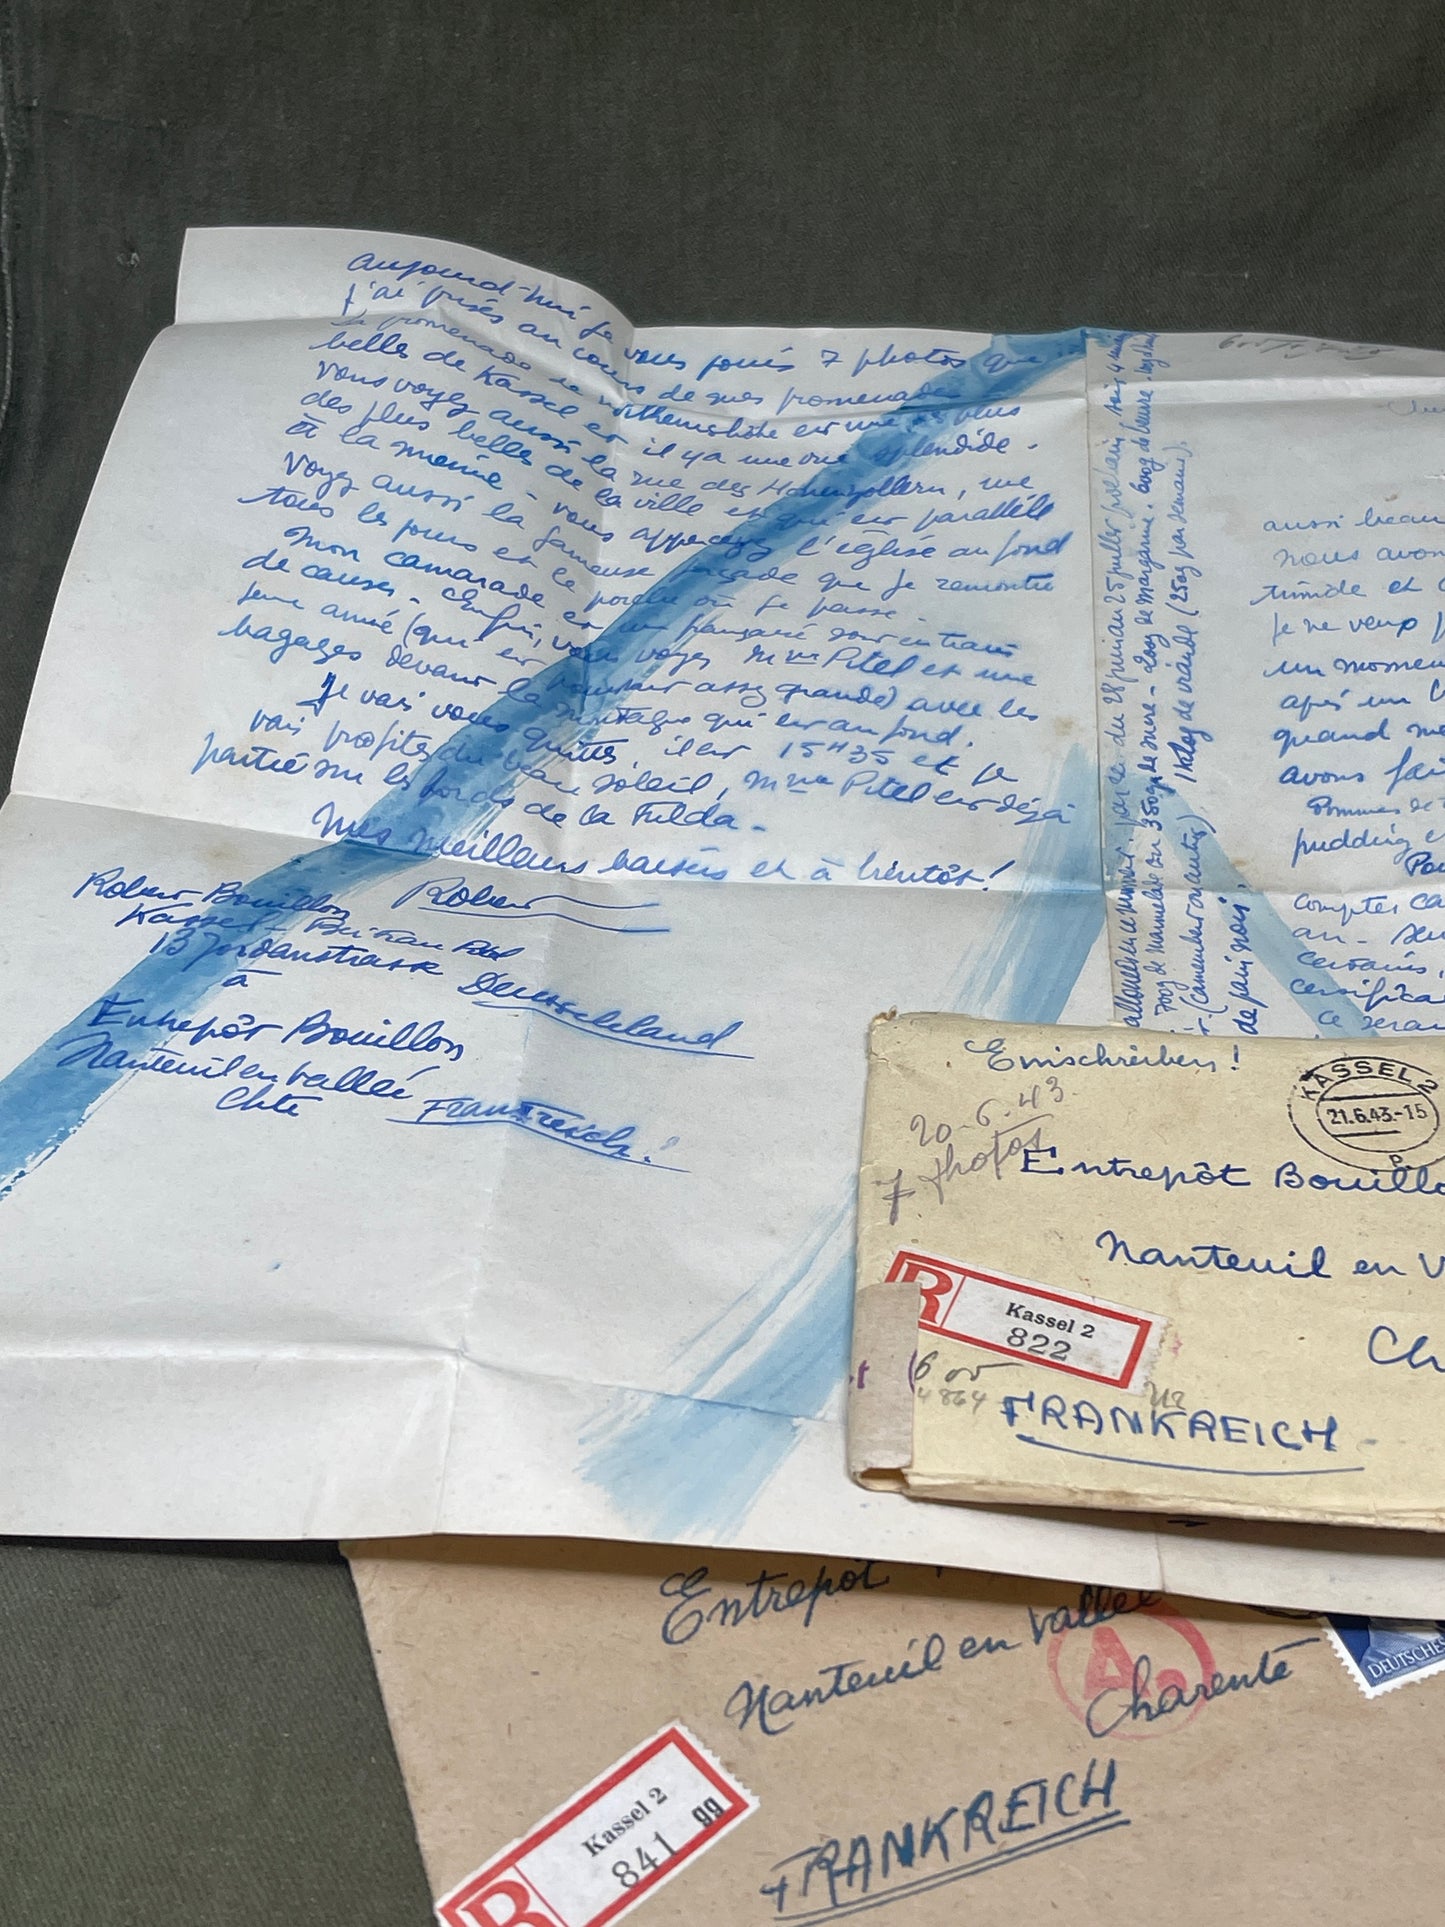 Aujourd'hui je vous joins 7 photos que
j'ai prises au cours de mes promenades
La promenade de est une des plus
belles de Kassel et il y a une vue splendide.
Vous voyez aussi la rue des Hohenzollern, une
des plus belles de la ville et qui est parallèle
à la mienne - vous appercevez l'église au fond
Voyez aussi la fameuse façade que je remonte
tous les jours et le porche où je passe.
Mon camarade et un français sont en train
de causer. Enfin, vous voyez Mme Pitel et une
jeune amie (qui est pourtant assez grande) avec les
bagages devant la montagne qui est au fond.
Je vais vous quitter, il est 15H35 et je
vais profiter du beau soleil, Mme Pitel est déjà
partie sur les bords de la Fulda -
Mes meilleurs baisers et à bientôt!
Robert
Robert Bouillon
Kassel - Bei Frau Pitel
13 Jordanstrasse
Deutschland
à
Entrepôt Bouillon
Nanteuil en vallée
Chte
Frankreich!
en ce moment: par sem. du 28 juin au 25 juillet prochain,
700g de marmelade ou 350g de sucre - 200g de margarine.
(camembert ou entier) 1 kg de viande (250g par semaine).
de pain noir.
aussi beau
nous avon
timide et
je ne veux
un momen
après un
quand me
avons fai
Pommes de t
pudding e
Pou
comptes ca
an-
certains,
certifica
ce serai
Einschreiben!
20-6-43.
7 photos
KASSEL 2
21.6.43.-15
Entrepôt Bouillo
Nanteuil en V
Ch
R
Kassel 2
822
4864
FRANKREICH
Entrepôt
Nanteuil en Vallée
Charente
A
DEUTSCHES
FRANKREICH
R
Kassel 2
841
99